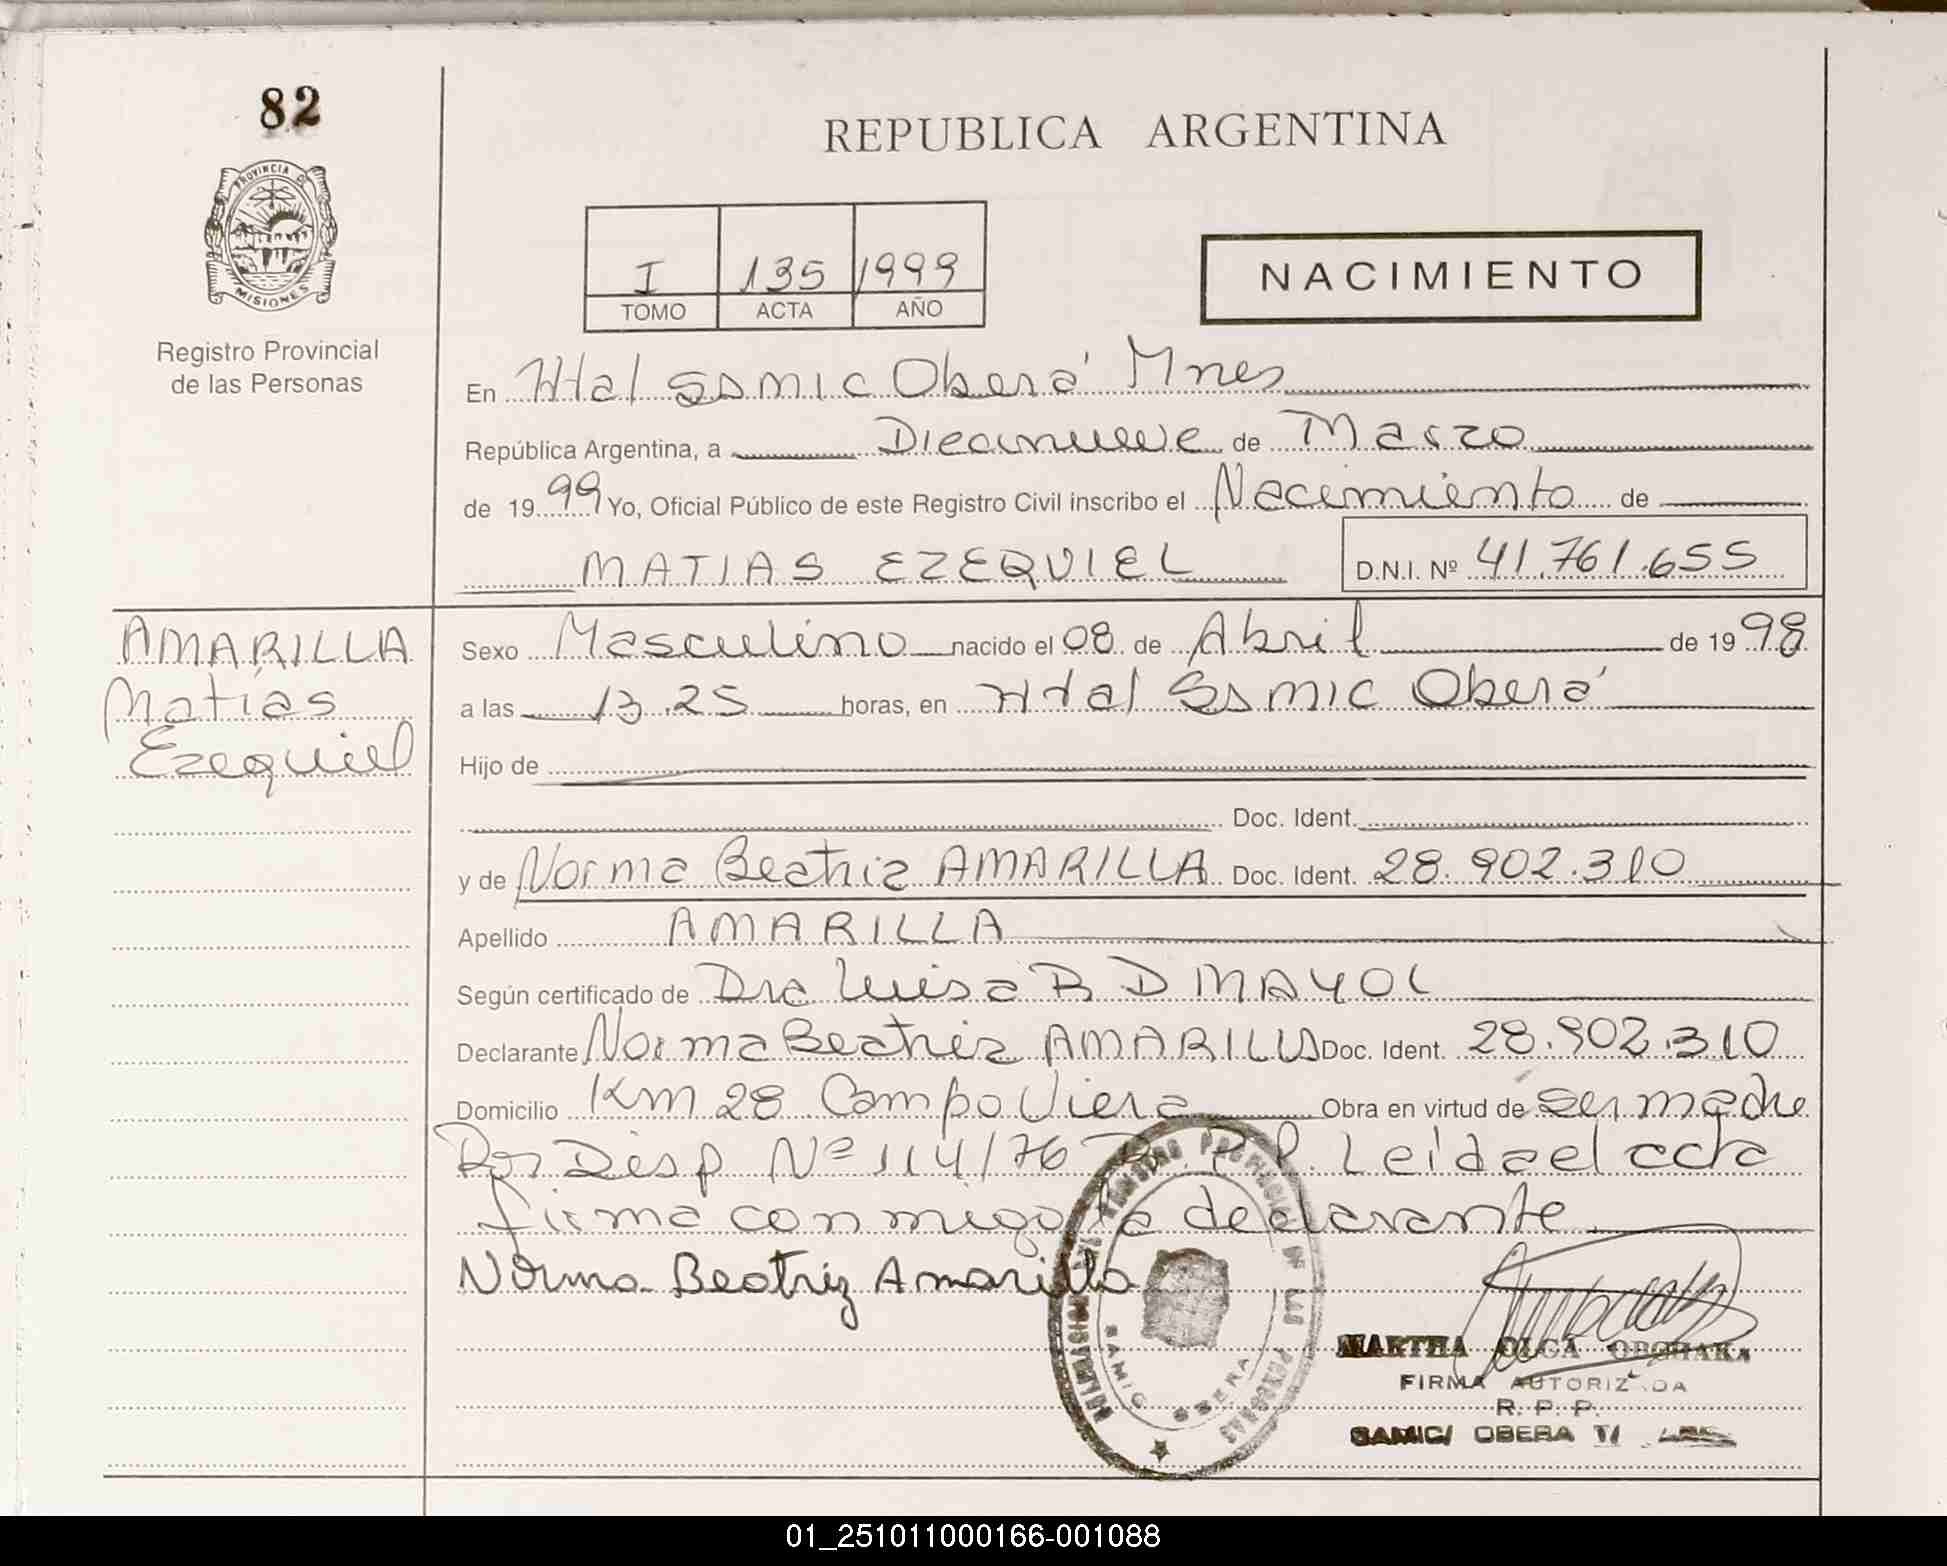 82
REPUBLICA ARGENTINA
PROVINCIA DE
MISIONES
I 135 1999
TOMO ACTA AÑO
NACIMIENTO
Registro Provincial
de las Personas
En Htal SAMIC Oberá Mnes
República Argentina, a Diecinueve de Marzo
de 19 99 Yo, Oficial Público de este Registro Civil inscribo el Nacimiento de
MATIAS EZEQUIEL D.N.I. Nº 41.761.655
AMARILLA
Matías
Ezequiel
Sexo Masculino nacido el 08 de Abril de 19 98
a las 13.25 horas, en Htal SAMIC Oberá
Hijo de
Doc. Ident.
y de Norma Beatriz AMARILLA Doc. Ident. 28.902.310
Apellido AMARILLA
Según certificado de Dra Luisa R D MAYOL
Declarante Norma Beatriz AMARILLA Doc. Ident. 28.902.310
Domicilio Km 28 Campo Viera Obra en virtud de ser madre
Por Disp Nº 114/76 R.P.P. Leída el acta
firma conmigo la declarante
Norma Beatriz Amarilla
REGISTRO PROVINCIAL DE LAS PERSONAS
SAMIC OBERA
MARTHA OLGA
FIRMA AUTORIZADA
R. P. P.
SAMIC/ OBERA
01_251011000166-001088